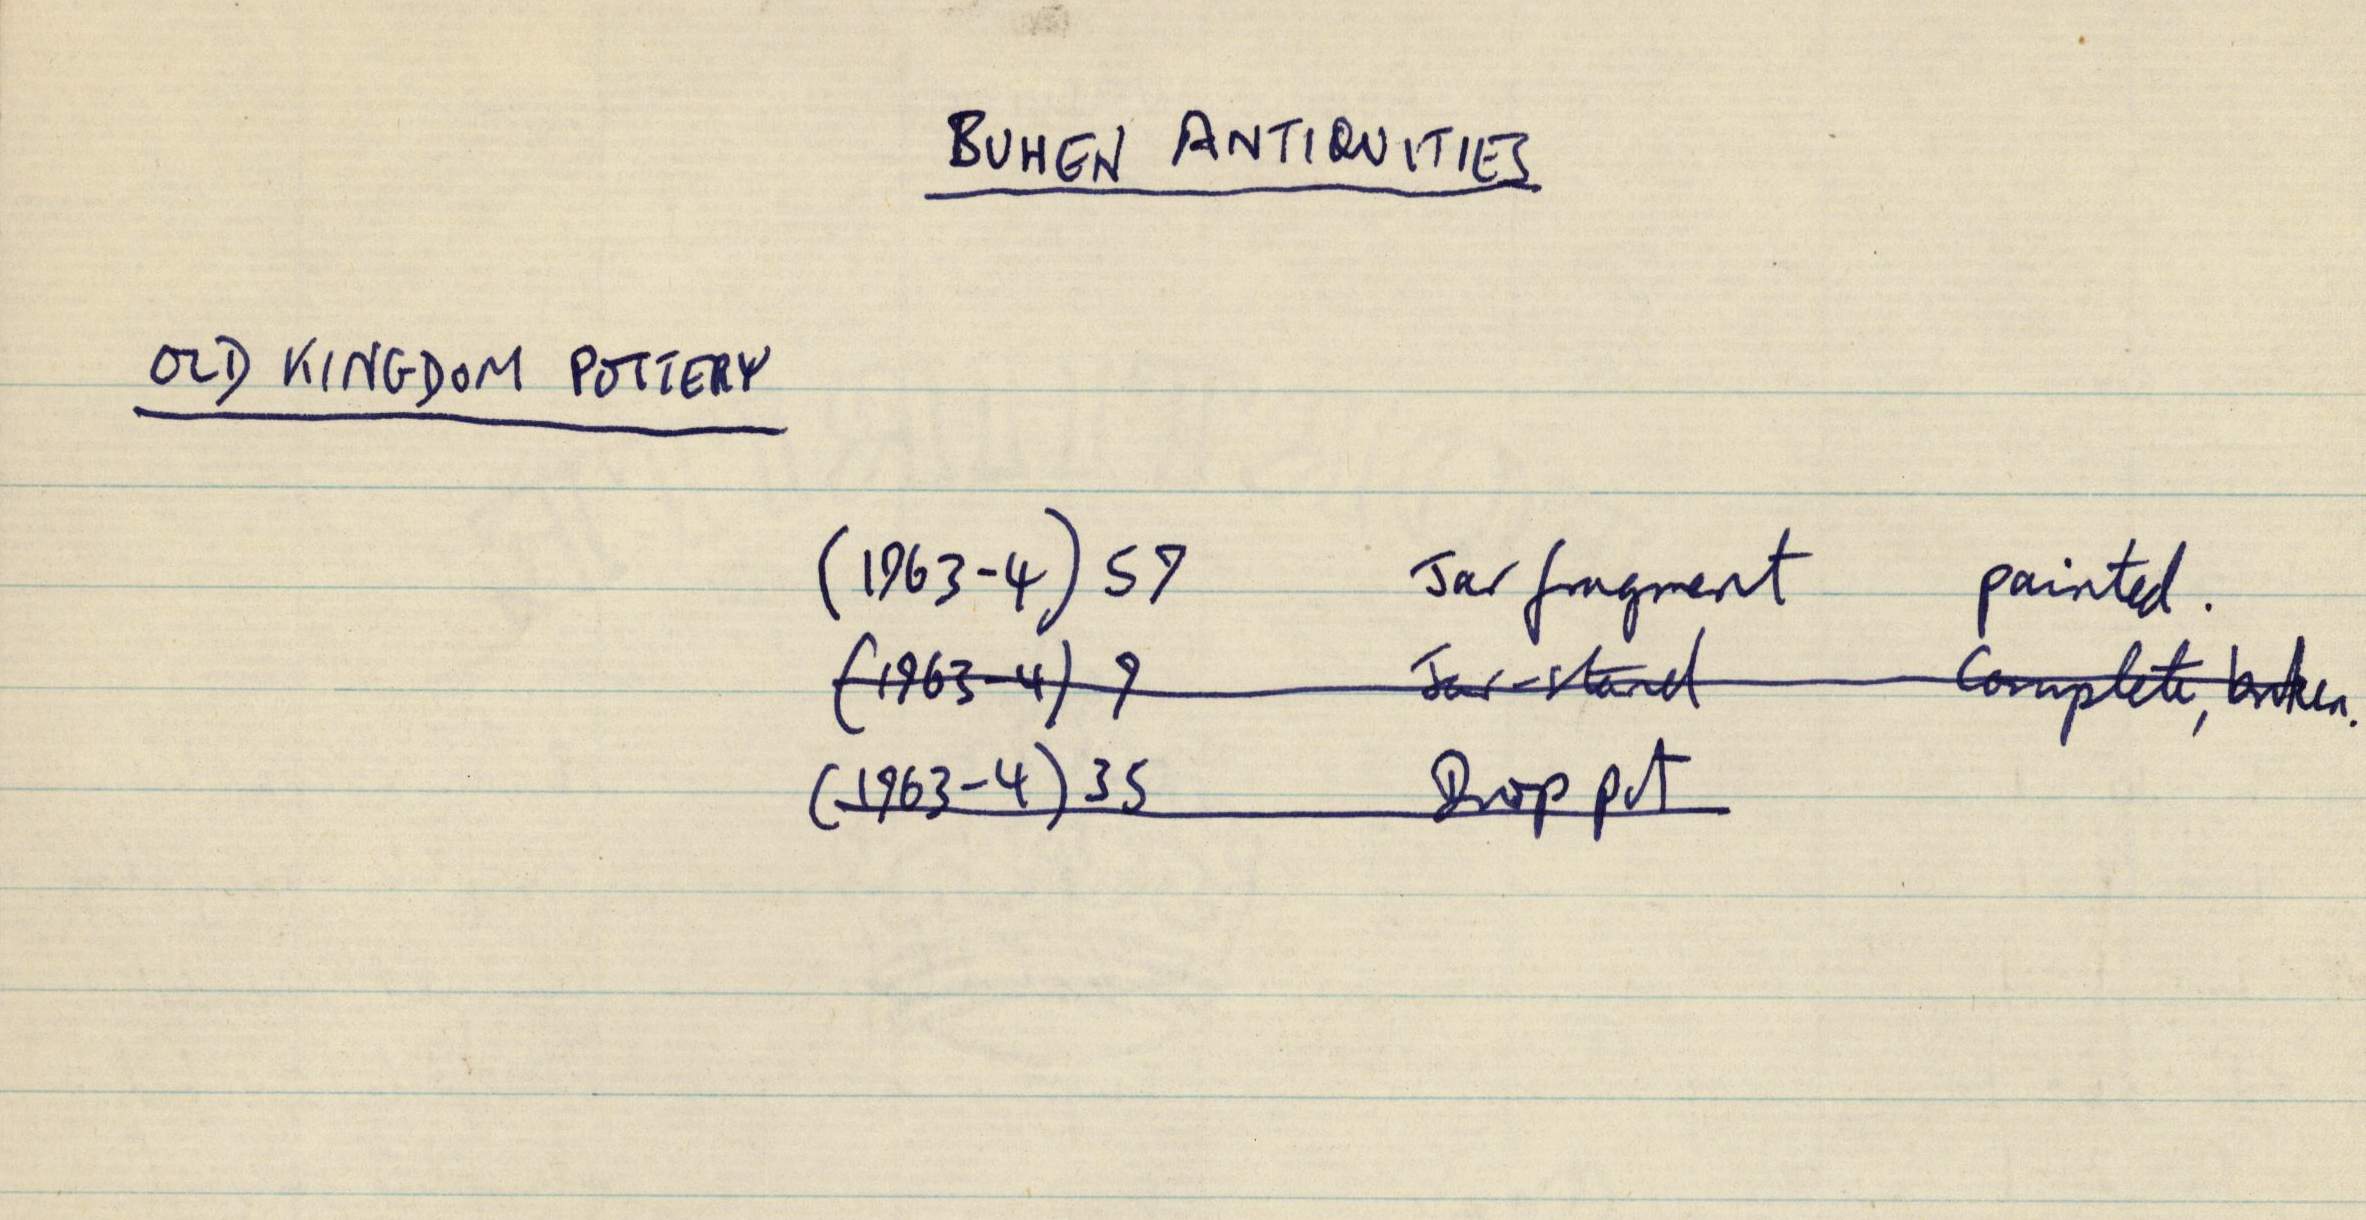 BUHEN ANTIQUITIES
OLD KINGDOM POTTERY
(1963-4) 57 Jar fragment painted.
(1963-4) 9 Jar-stand Complete, broken.
(1963-4) 35 Drop pot